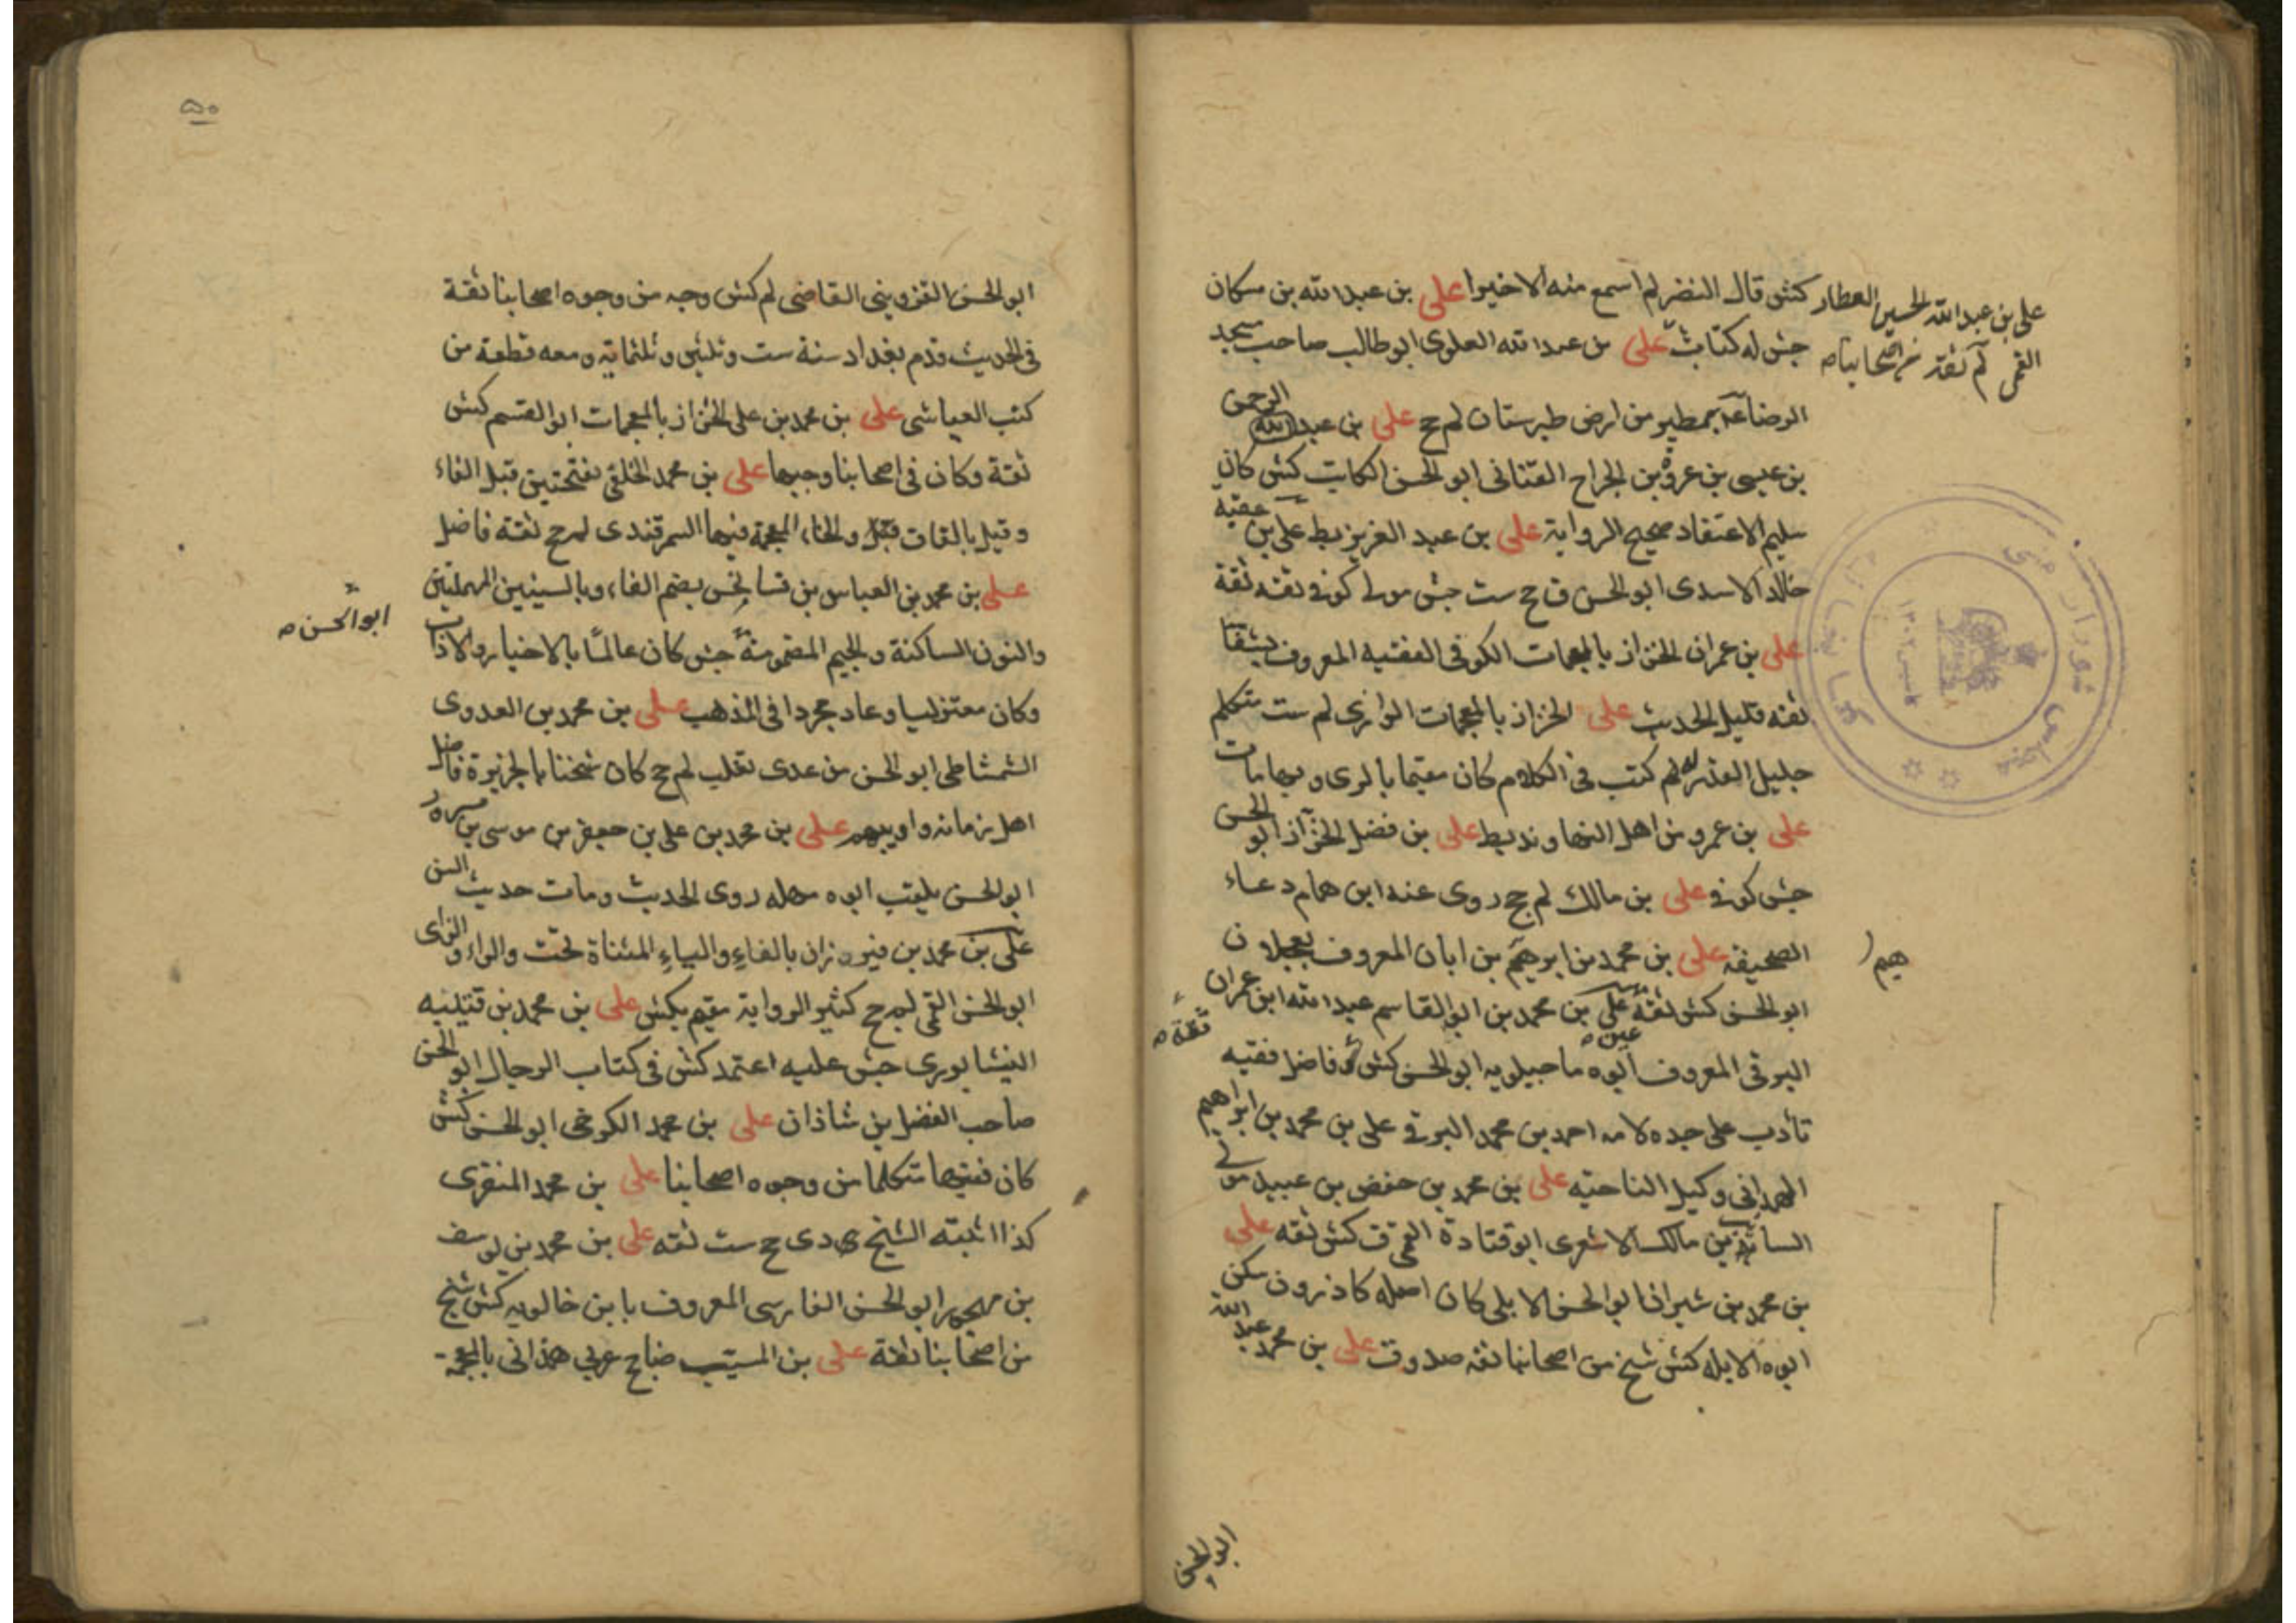 كش قال النضر لم اسمع منه الا خيرا على بن عبد الله بن مسكان
جش له كتاب على بن عبد الله العلوى ابو طالب صاحب مسجد
الرضا بمطير من ارض طبرستان لم جح على بن عبد الرحمن
بن عيسى بن عروة بن الجراح القنانى ابو الحسن الكاتب كش كان
سليم الاعتقاد صحيح الرواية على بن عبد العزيز يط على بن عقبة
خالد الاسدى ابو الحسن ق جح ست جش مولى كوفى ثقه ثقة
على بن عمران الخزاز بالمعجمات الكوفى الفقيه المعروف بشفا
ثقه قليل الحديث على الخزاز بالمعجمات الرازى لم ست متكلم
جليل القدر له كتب فى الكلام كان مقيما بالرى وبها مات
على بن عمرو من اهل النهاوند يط على بن فضل الخزاز ابو الحسن
جش كوفى على بن مالك لم جح روى عنه ابن همام دعاء
الصحيفه على بن محمد بن ابرهيم بن ابان المعروف بعلان
ابو الحسن كش ثقة على بن محمد بن ابو القاسم عبد الله ابن عمران
البرقى المعروف ابوه ماجيلويه ابو الحسن كش فاضل فقيه
تأدب على جده لامه احمد بن محمد البرقى على بن محمد بن ابراهيم
الهمدانى وكيل الناحيه على بن محمد بن حفص بن عبيد مولى
السائب بن مالك الاشعرى ابو قتادة القمى ق كش ثقه على
بن محمد بن شيران ابو الحسن الابلى كان اصله كازرون سكن
ابوه الابله كش شيخ من اصحابنا ثقه صدوق على بن محمد عبد الله
على بن عبد الله الحسين العطار
القمى لم ثقة من اصحابنا
هيم
عين
ثقة
ابو الحسن
۵۰
ابو الحسن القزوينى القاضى لم كش وجه من وجوه اصحابنا ثقة
فى الحديث قدم بغداد سنة ست وثلثين وثلثماية ومعه قطعة من
كتب العياشى على بن محمد بن على الخزاز بالمعجمات ابو القسم كش
ثقة وكان فى اصحابنا وجيها على بن محمد الخلقى بفتحتين قبل الفاء
وقيل بالقاف قبل والخاء المعجمة فيها السمرقندى لم جح ثقة فاضل
على بن محمد بن العباس بن فسانجس بضم الفاء وبالسينين المهملتين
والنون الساكنة والجيم المضمومة جش كان عالما بالاخبار والاداب
وكان معتزليا وعاد مجردا فى المذهب على بن محمد بن العدوى
الشمشاطى ابو الحسن من عدى تغلب لم جح كان شيخنا بالجزيرة فاضل
اهل زمانه واديبهم على بن محمد بن على بن جعفر بن موسى بن مسرور
ابو الحسن يلقب ابوه مملة روى الحديث ومات حديث السن
على بن محمد بن فيروزان بالفاء والياء المثناة تحت والراء والزاى
ابو الحسن القمى لم جح كثير الرواية مقيم بكش على بن محمد بن قتيبه
النيشابورى جش عليه اعتمد كش فى كتاب الرجال ابو الحسن
صاحب الفضل بن شاذان على بن محمد الكرخى ابو الحسن كش
كان فقيها متكلما من وجوه اصحابنا على بن محمد المنقرى
كذا اثبته الشيخ دى جح ست ثقه على بن محمد بن يوسف
بن مهجور ابو الحسن الفارسى المعروف بابن خالويه كش شيخ
من اصحابنا ثقة على بن المسيب ضا جح عربي همدانى بالمعجمة
ابو الحسن